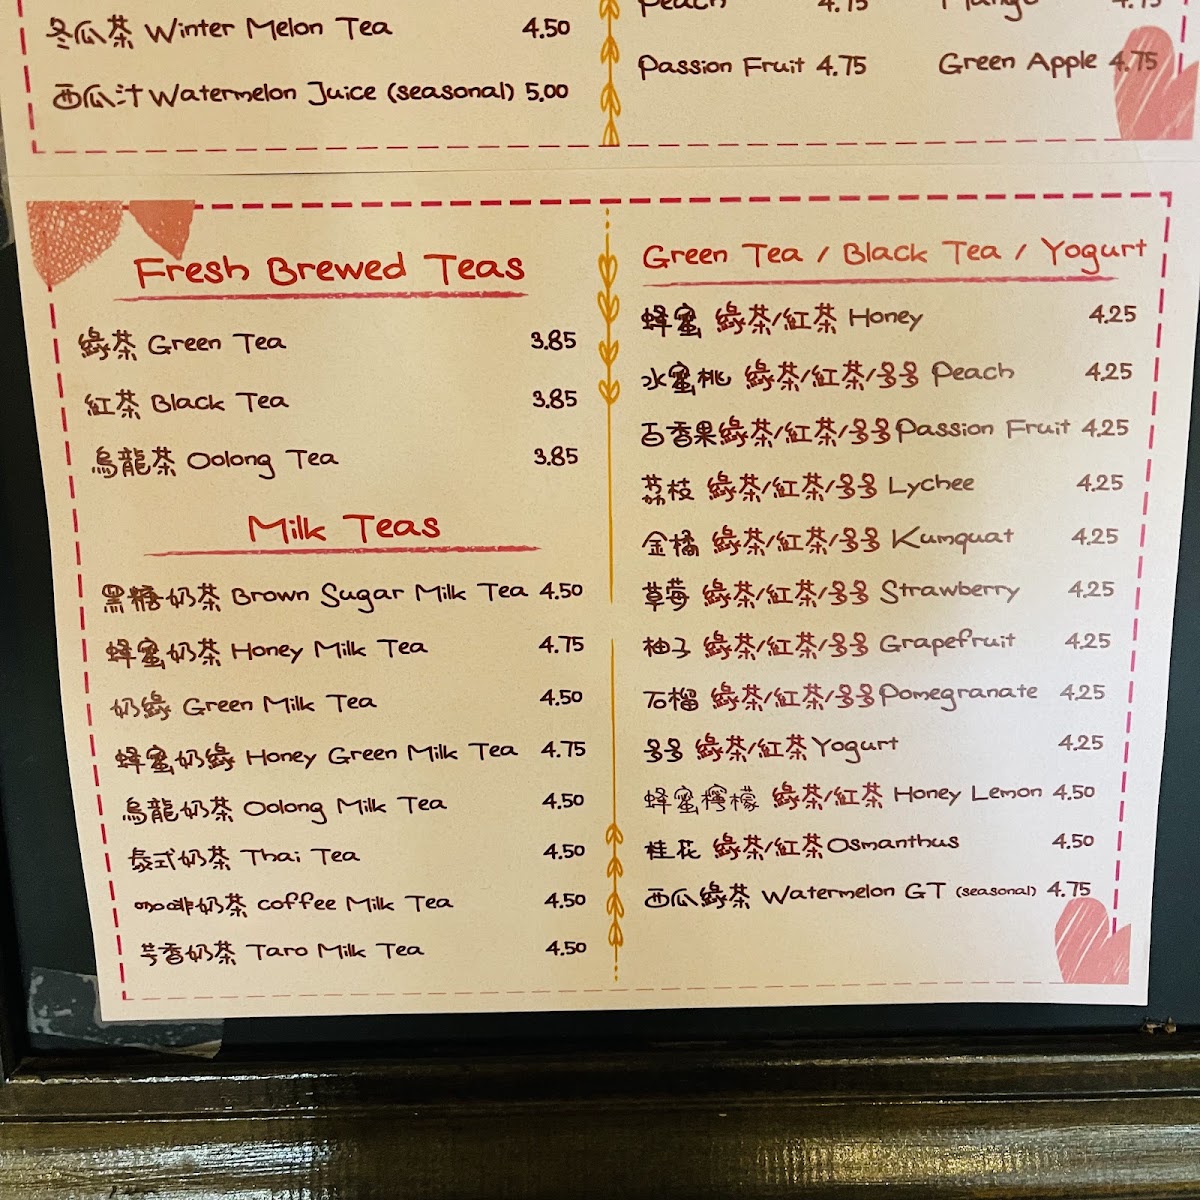 冬瓜茶 Winter Melon Tea 4.50
西瓜汁 Watermelon Juice (seasonal) 5.00
Peach 4.75 Mango 4.75
Passion Fruit 4.75 Green Apple 4.75
Fresh Brewed Teas
綠茶 Green Tea 3.85
紅茶 Black Tea 3.85
烏龍茶 Oolong Tea 3.85
Milk Teas
黑糖奶茶 Brown Sugar Milk Tea 4.50
蜂蜜奶茶 Honey Milk Tea 4.75
奶綠 Green Milk Tea 4.50
蜂蜜奶綠 Honey Green Milk Tea 4.75
烏龍奶茶 Oolong Milk Tea 4.50
泰式奶茶 Thai Tea 4.50
咖啡奶茶 Coffee Milk Tea 4.50
芋香奶茶 Taro Milk Tea 4.50
Green Tea / Black Tea / Yogurt
蜂蜜 綠茶/紅茶 Honey 4.25
水蜜桃 綠茶/紅茶/多多 Peach 4.25
百香果綠茶/紅茶/多多 Passion Fruit 4.25
荔枝 綠茶/紅茶/多多 Lychee 4.25
金橘 綠茶/紅茶/多多 Kumquat 4.25
草莓 綠茶/紅茶/多多 Strawberry 4.25
柚子 綠茶/紅茶/多多 Grapefruit 4.25
石榴 綠茶/紅茶/多多 Pomegranate 4.25
多多 綠茶/紅茶 Yogurt 4.25
蜂蜜檸檬 綠茶/紅茶 Honey Lemon 4.50
桂花 綠茶/紅茶 Osmanthus 4.50
西瓜綠茶 Watermelon GT (seasonal) 4.75